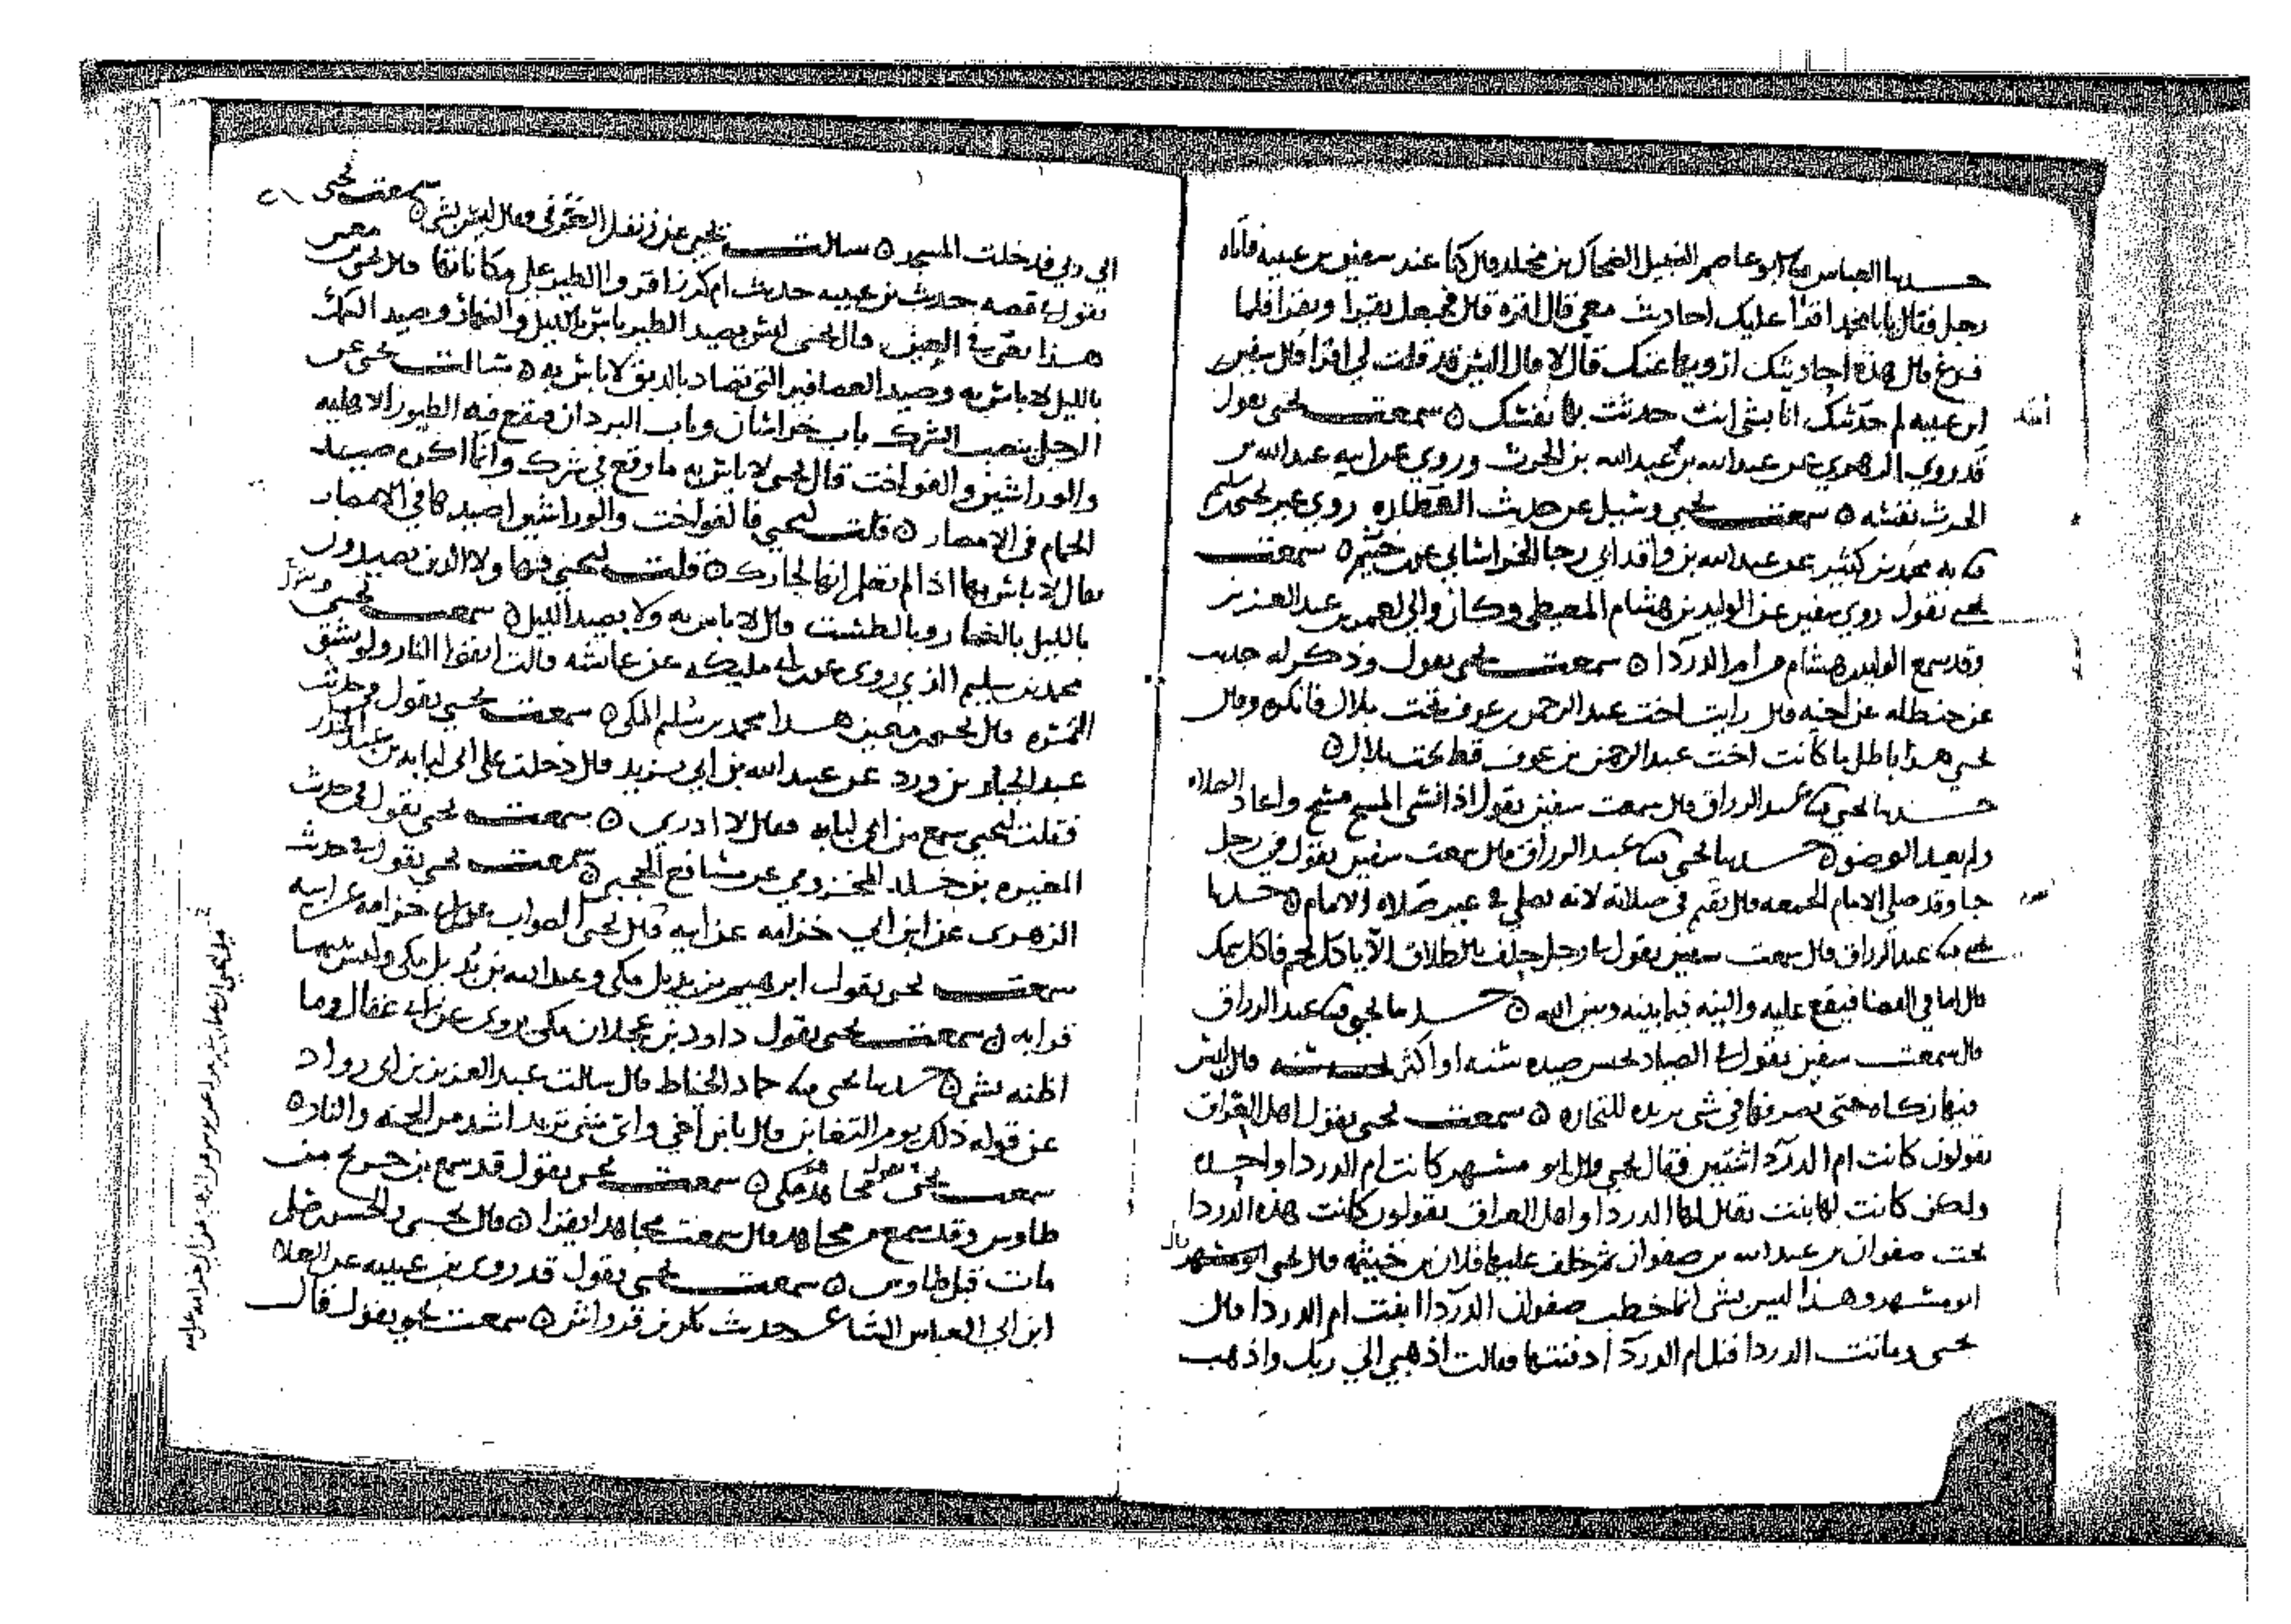 حدثنا العباس نا ابو عاصم النبيل الضحاك بن مخلد قال كنا عند سفين بن عيينه فاتاه
رجل فقال يا با محمد اقرا عليك احاديث معي قال اقره قال فجعل يقرا ويقرا فلما
فرغ قال هذه احاديثك ارويها عنك قال لا قال اليس قد قلت لي اقرا قال سفين
ابن عيينه لم احدثك انا بشي انت حدثت بها نفسك سمعت يحيى يقول
قد روى الزهري عن عبد الله بن عبد الله بن الحرث وروى عن ابيه عبد الله بن
الحرث نفسه سمعت يحيى وسئل عن حديث القطاره روي عن يحيى بن سليم
نا به محمد بن كثير عن عبد الله بن واقد ابي رجا الخراساني عن بن خثيم سمعت
يحيى يقول روى سفين عن الوليد بن هشام المعيطي وكان والي لعمر بن عبد العزيز
وقد سمع الوليد بن هشام من ام الدردا سمعت يحيى يقول وذكر له حديث
عن حنظله عن اخيه قال رايت اخت عبد الرحمن بن عوف تحت بلال فانكره وقال
يحيى هذا باطل ما كانت اخت عبد الرحمن بن عوف قط تحت بلال
حدثنا يحيى نا عبد الرزاق قال سمعت سفين يقول اذا نسي المسح مسح واعاد الصلاه
ولم يعد الوضو حدثنا يحيى نا عبد الرزاق قال سمعت سفين يقول في رجل
جا وقد صلى الامام الجمعه قال يقيم في صلاته لانه يصلي في غير صلاه الامام حدثنا
يحيى نا عبد الرزاق قال سمعت سفين يقول في رجل حلف بالطلاق الا ياكل لحم فاكل سمك
قال اما في القضا فيقع عليه والنيه فيما بينه وبين الله حدثنا يحيى نا عبد الرزاق
قال سمعت سفين يقول في الصياد يحبس صيده سنه او اكثر قال ليس
فيها زكاه حتى يصرفها في شي يريده للتجاره سمعت يحيى يقول اهل العراق
يقولون كانت ام الدردا اثنتين فقال يحيى قال ابو مسهر كانت ام الدردا واحده
ولكن كانت لها بنت يقال لها الدردا واهل العراق يقولون كانت هذه الدردا
تحت صفوان بن عبد الله بن صفوان ثم خلف عليها فلان بن خيثمه قال يحيى قال
ابو مسهر وهذا ليس بشي انما خطب صفوان الدردا ابنت ام الدردا قال
يحيى وماتت الدردا قبل ام الدردا دفنتها فقالت اذهبي الى ربك واذهب
الى ربي فدخلت المسجد سالت يحيى عن وقال ليس بشي سمعت يحيى
يقول في قصه حديث بن عيينه حديث ام كرز اقروا الطير على مكاناتها قال يحيى بن معين
هذا يعني في قال يحيى ليس بصيد الطير باس بالليل والنهار وصيد السمك
بالليل لا باس به وصيد العصافير التي تصاد بالدبق لا باس به سالت يحيى عن
الرجل ينصب الشرك باب خراسان وباب البردان فتقع فيه الطيور الاهليه
والوراشين والفواخت قال يحيى لا باس به ما وقع في شرك وانما اكره صيد
الحمام في الامصار قلت ليحيى فالفواخت والوراشين اصيدها في الامصار
فقال لا باس بها اذا لم تعلم انها لجارك قلت ليحيى فهاولا الذين يصيدون
بالليل بالنار وبالطست قال لا باس به ولا بصيد الليل سمعت يحيى وسئل
محمد بن سليم الذي روى عن بن ابي مليكه عن عايشه قالت اتقوا النار ولو بشق
التمره قال يحيى بن معين هذا محمد بن سليم المكي سمعت يحيى يقول في حديث
عبد الجبار بن ورد عن عبيد الله بن ابي يزيد قال دخلت على ابي لبابه بن عبد المنذر
فقلت ليحيى سمع من ابي لبابه فقال لا ادري سمعت يحيى يقول في حديث
المغيره بن خالد المخزومي عن مسافع الحجبي سمعت يحيى يقول في حديث
الزهرى عن ابن ابي خزامه عن ابيه قال يحيى الصواب عن ابي خزامه عن ابيه
سمعت يحيى يقول ابرهيم بن يزيد مكي وعبد الله بن يزيد مكي وليس بينهما
قرابه سمعت يحيى يقول داود بن عجلان مكي يروى عن ابي عقال وما
اظنه بشي حدثنا يحيى نا حماد الخياط قال سالت عبد العزيز بن ابي رواد
عن قوله ذلك يوم التغابن قال يا بن اخي واي شي تريد اشد من الجنه والنار
سمعت يحيى يقول مجاهد مكي سمعت يحيى يقول قد سمع بن جريج من
طاوس وقد سمع من مجاهد قال سمعت مجاهدا يقرا قال يحيى والحسن بن مسلم
مات قبل طاوس سمعت يحيى يقول قد روى بن عيينه عن العلا
ابن ابي العباس الشاعر حديث بكر بن قرواش سمعت يحيى يقول قال